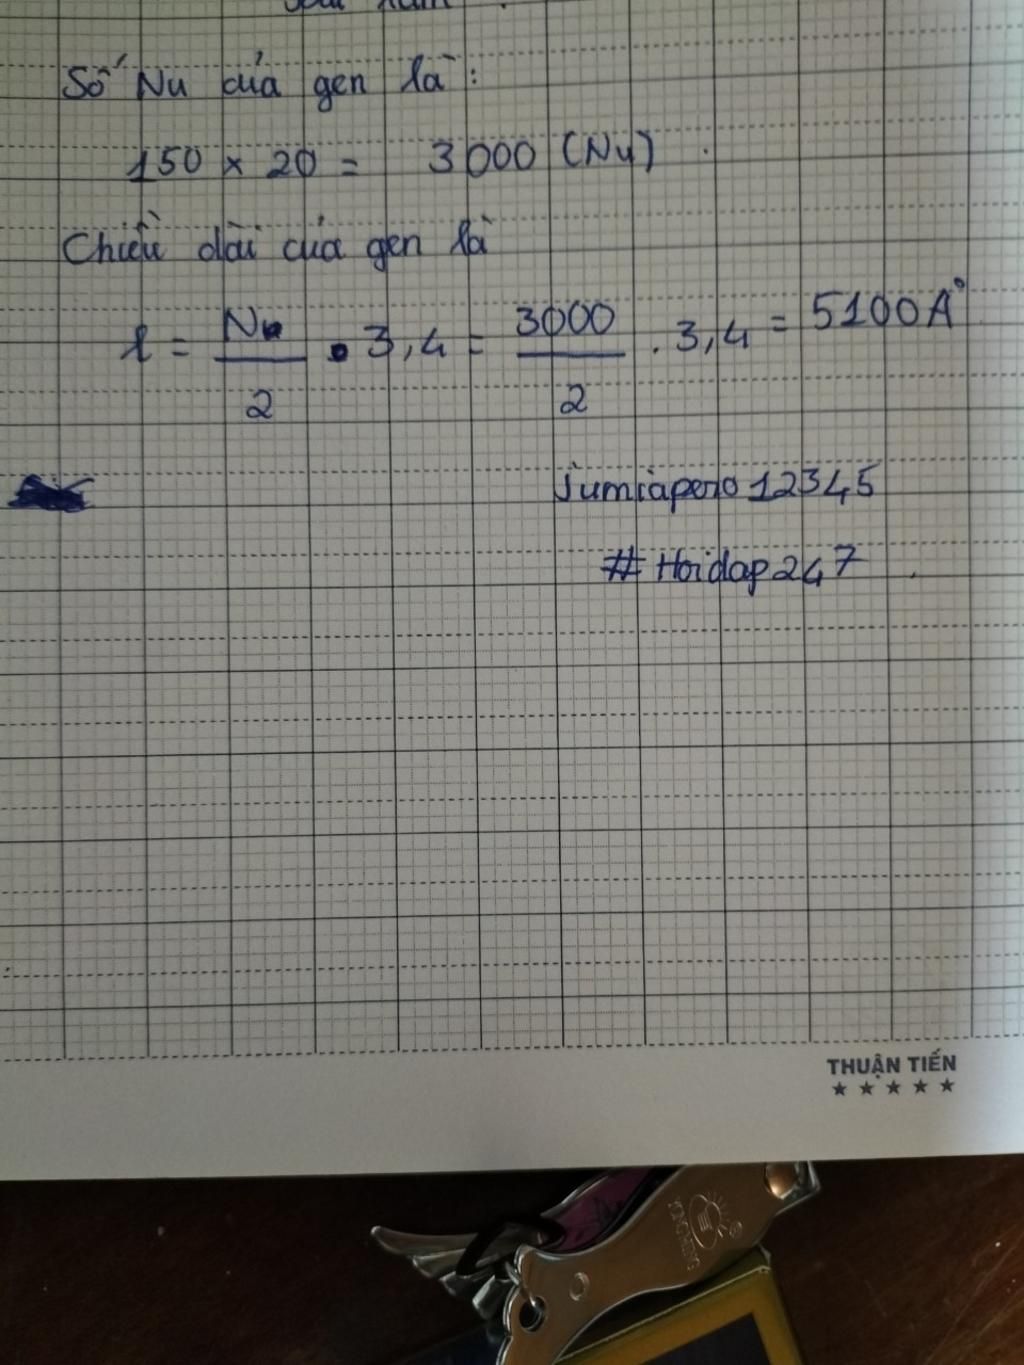 Số Nu của gen là:
150 x 20 = 3000 (Nu).
Chiều dài của gen là
l = Nu / 2 . 3,4 = 3000 / 2 . 3,4 = 5100A°
jumiapero12345
# Hoidap247
THUẬN TIẾN
★★★★★